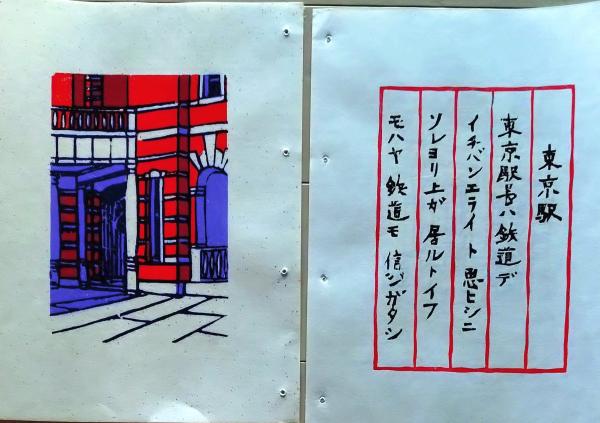 東京駅
東京駅長ハ鉄道デ
イチバンエライト思ヒシニ
ソレヨリ上ガ居ルトイフ
モハヤ鉄道モ信ジガタシ